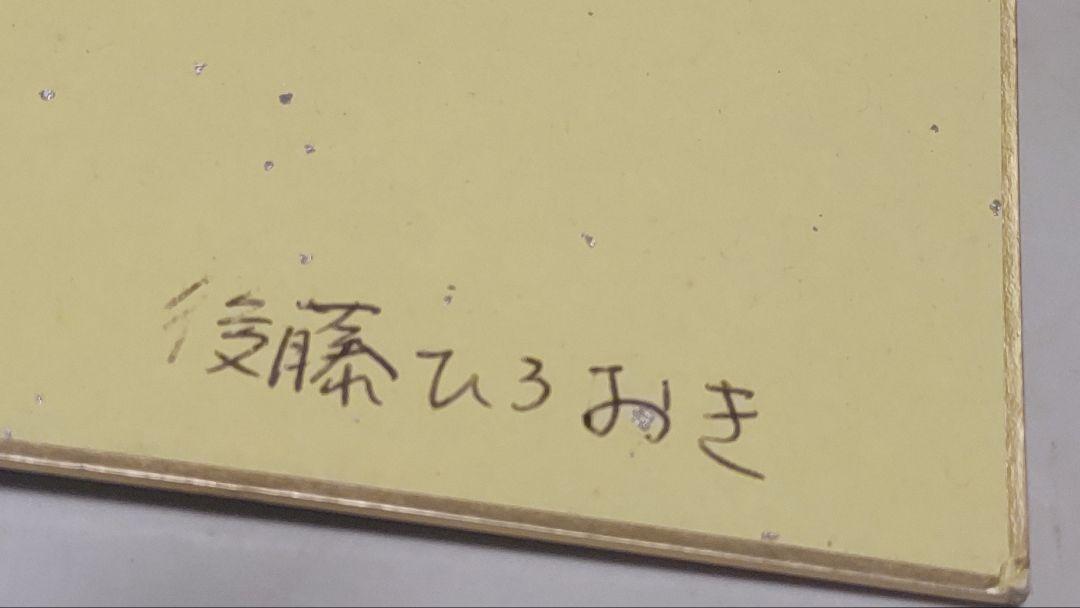 後藤ひろおき